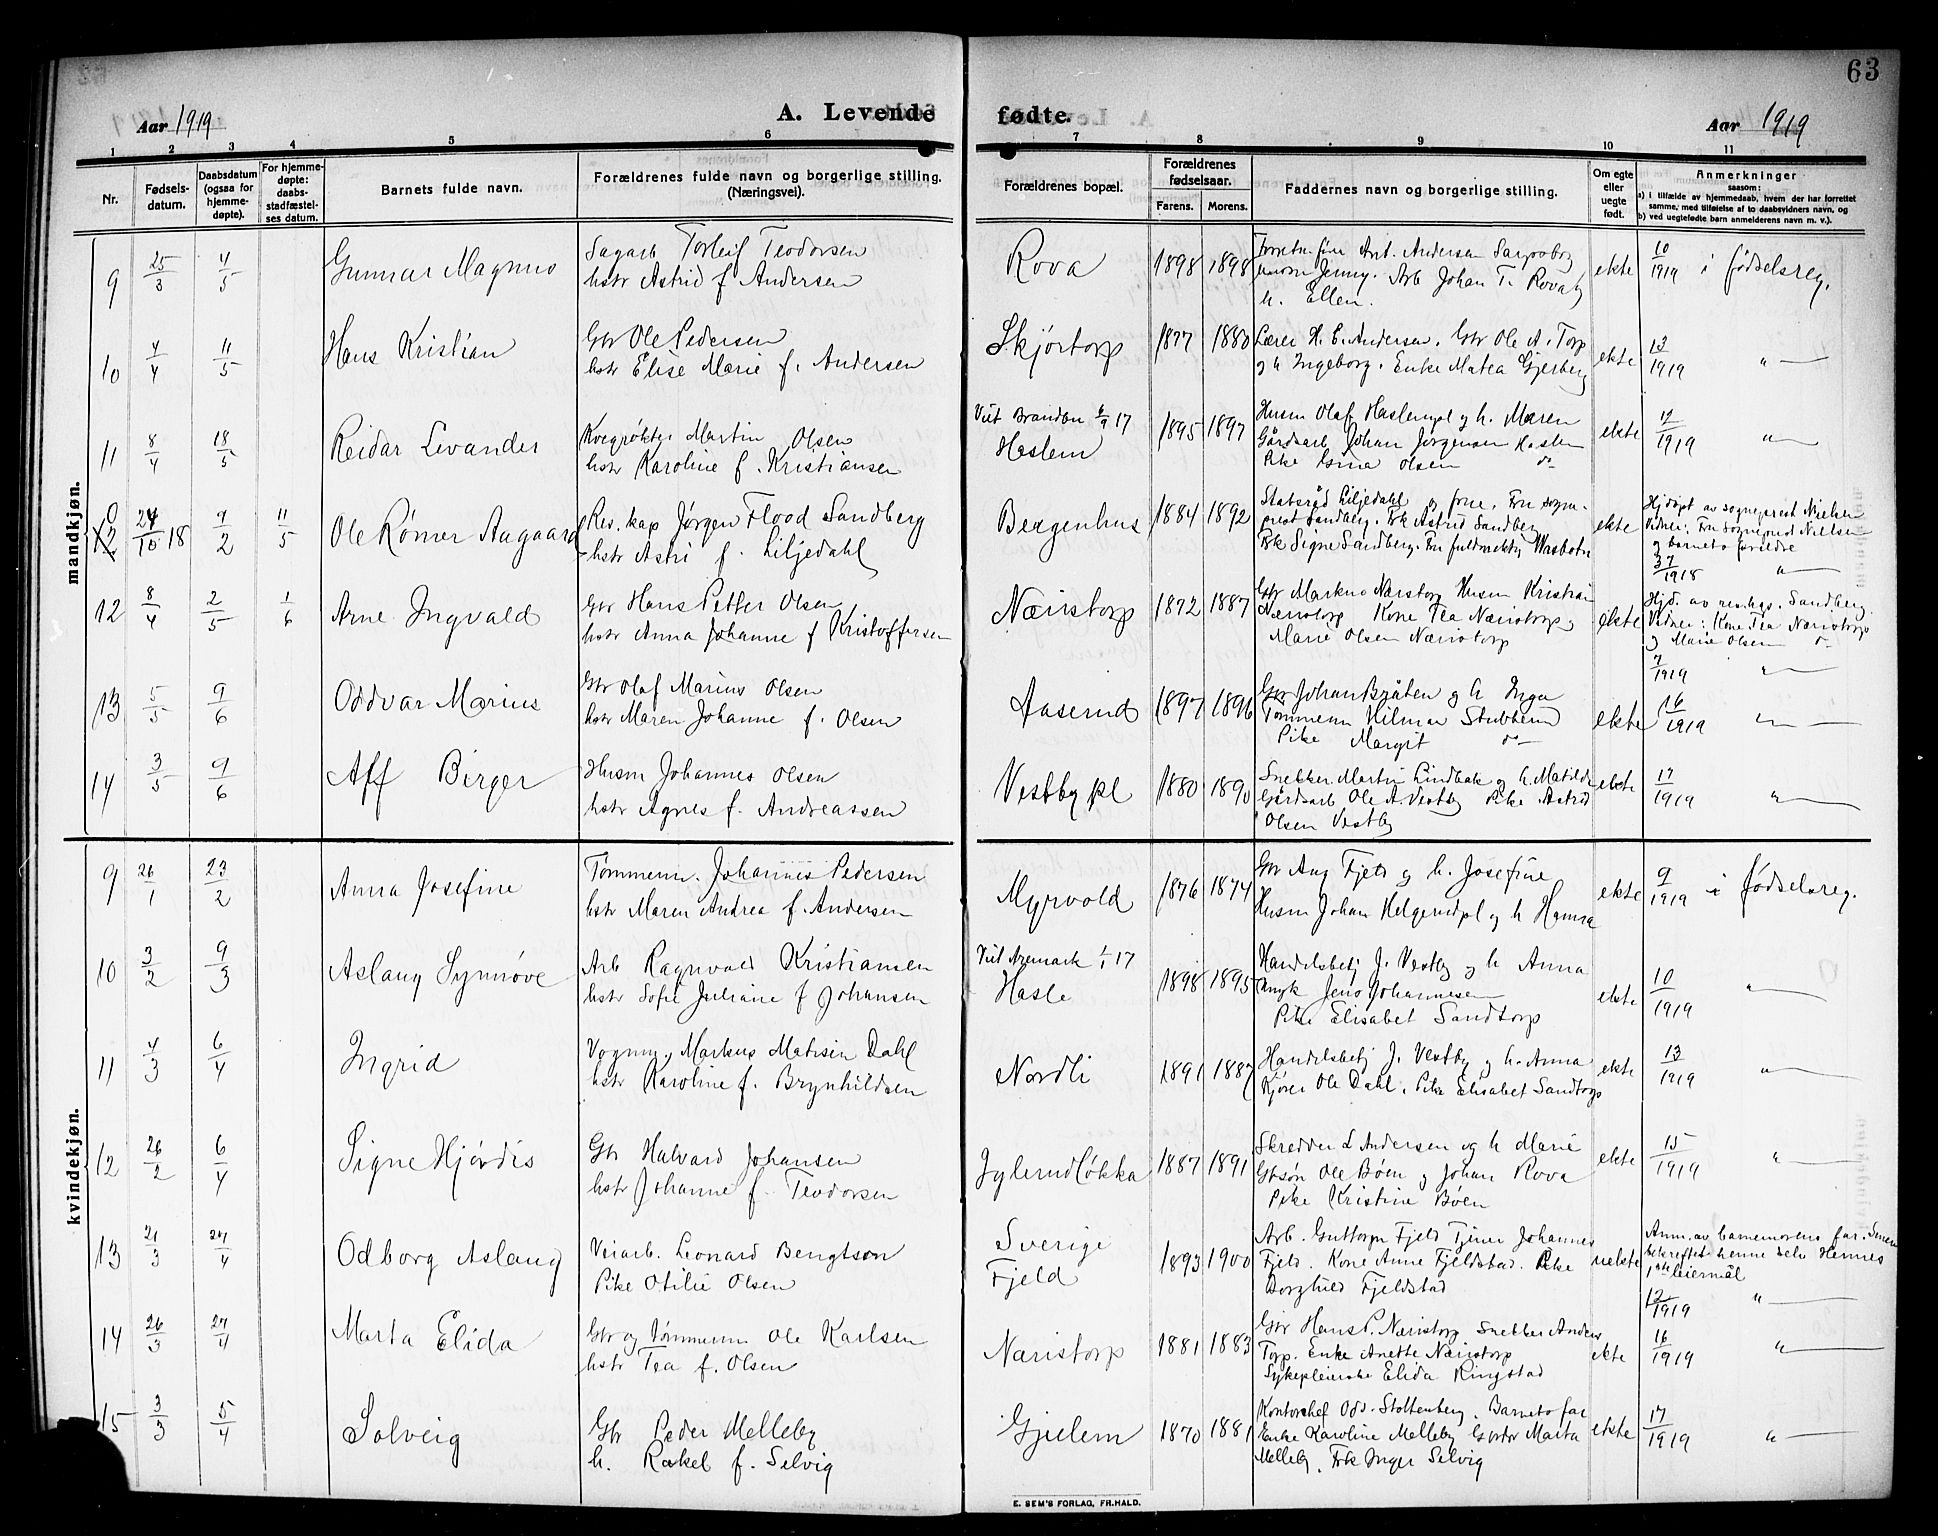 63
Aar 1919
A. Levende fødte.
Aar 1919
1 2 3 4 5 6 7 8 9 10 11
Nr.
Fødsels-
datum.
Daabsdatum
(ogsaa for
hjemme-
døpte).
For hjemme-
døpte:
daabs-
stadfæstel-
ses datum.
Barnets fulde navn.
Forældrenes fulde navn og borgerlige stilling.
(Næringsvei).
Forældrenes bopæl.
Forældrenes
fødselsaar.
Farens. Morens.
Faddernes navn og borgerlige stilling.
Om egte
eller
uegte
født.
Anmerkninger
saasom:
a) i tilfælde av hjemmedaab, hvem der har forrettet
samme, med tilføielse af to daabsvidners navn, og
b) ved uegtefødte barn anmelderens navn m. v.).
mandkjøn.
9 25/3 4/5 Gunnar Magnus
Sagarb Torleif Teodorsen
hstr Astrid f Andersen
Rova 1898 1898
Arnt. Andersen Sarpsborg
Jenny. Arb Johan T. Rova og
h. Ellen.
ekte
10/1919 i fødselsreg.
10 4/4 11/5 Hans Kristian
Gbr Ole Pedersen
hstr Elise Marie f. Andersen
Skjørtorp 1877 1880
Lærer H. E. Andersen. Gbr Ole A. Torp
og h Ingeborg. Enke Matea Gjerberg
ekte
13/1919 " —
11 8/4 18/5 Reidar Levander
Kvegrøkter Martin Olsen
hstr Karoline f. Kristiansen
Viet Brandbu 6/9 17
Haslem 1895 1897
Husm Olaf Haslempl og h. Maren
Gårdsarb Johan Jørgensen Haslem
Pike Gina Olsen do
ekte
12/1919 " —
0 12 24/10 18 9/2 11/5 Ole Rømer Aagaard
Res. kap Jørgen Flood Sandberg
hstr Astri f. Liljedahl
Bergenhus 1884 1892
Statsråd Liljedahl og frue. Fru sogne-
prest Sandberg. Frk Astrid Sandberg
Frk Signe Sandberg. Fru fuldmektig
ekte
Hjdøpt av sogneprest Nielsen
Vidner: Fru sogneprest Nielsen
og barnets forældre
37/1918 " —
12 8/4 2/5 1/6 Arne Ingvald
Gbr Hans Petter Olsen
hstr Anna Johanne f Kristoffersen
Næristorp 1872 1887
Gbr Markus Næristorp Husm Kristian
Næristorp Kone Tea Næristorp og
Marie Olsen Næristorp
ekte
Hjd. av res. kap. Sandberg.
Vidner: Kone Tea Næristorp
og Marie Olsen do
7/1919 " —
13 5/5 9/6 Oddvar Marius
Gbr Olaf Marius Olsen
hstr Maren Johanne f. Olsen
Aaserud 1897 1896
Gbr Johan Bråten og h Inga
Tømmerm Hilmar Stubberud
Pike Margit do
ekte
16/1919 " —
14 3/5 9/6 Alf Birger
Husm Johannes Olsen
hstr Agnes f. Andreassen
Vestby pl 1880 1890
Snekker Martin Lindbak og h. Matilde
Gårdsarb Ole A. Vestby Pike Astrid
Olsen Vestby
ekte
17/1919 " —
kvindekjøn.
9 26/1 23/2 Anna Josefine
Tømmerm. Johannes Pedersen
hstr Maren Andrea f. Andersen
Myrvold 1876 1874
Gbr Aug Fjeld og h. Josefine
Husm Johan Helgerudpl og h Hanna
ekte
9/1919 i fødselsreg.
10 3/2 9/3 Aslaug Synnøve
Arb Ragnvald Kristiansen
hstr Sofie Juliane f Johansen
Viet Aremark 1/1 17
Hasle 1898 1895
Handelsbetj J. Vestby og h Anna
Jens Johannesen
Pike Elisabet Sandtorp
ekte
10/1919 " —
11 4/3 6/4 Ingrid
Vognm. Markus Matisen Dahl
hstr Karoline f. Brynhildsen
Nordli 1891 1887
Handelsbetj J. Vestby og h. Anna
Kjører Ole Dahl. Pike Elisabet Sandtorp
ekte
13/1919 " —
12 26/2 6/4 Signe Hjørdis
Gbr Halvard Johansen
hstr Johanne f. Teodorsen
Jylerudløkka 1887 1891
Skredder L Andersen og h Marie
Gbsøn Ole Bøen og Johan Rova
Pike Kristine Bøen
ekte
15/1919 " —
13 21/3 27/4 Odborg Aslaug
Veiarb. Leonard Bengtson
Pike Otilie Olsen
Sverige
Fjeld 1893 1900
Arb. Guttorm Fjeld Tjener Johannes
Fjeld. Kone Anne Fjeldstad. Pike
Borghild Fjeldstad
uekte
Anm. av barnemorens far. Senere
bekreftet henne selv Hennes
1ste leiermål
12/1919 " —
14 26/3 27/4 Marta Elida
Gbr og Tømmerm Ole Karlsen
hstr Tea f. Olsen
Næristorp 1881 1883
Gbr Hans P. Næristorp. Snekker Anders
Torp. Enke Anette Næristorp
Sykepleierske Elida Ringstad
ekte
16/1919 " —
15 3/3 5/4 Solveig
Gbr Peder Melleby
h. Rakel f. Selvig
Gjelem 1870 1881
Kontorchef Odd Stoltenberg. Barnets far
Enke Karoline Melleby Marta
Melleby. Frk Inger Selvig
ekte
17/1919 " —
E. SEM'S FORLAG, FR.HALD.